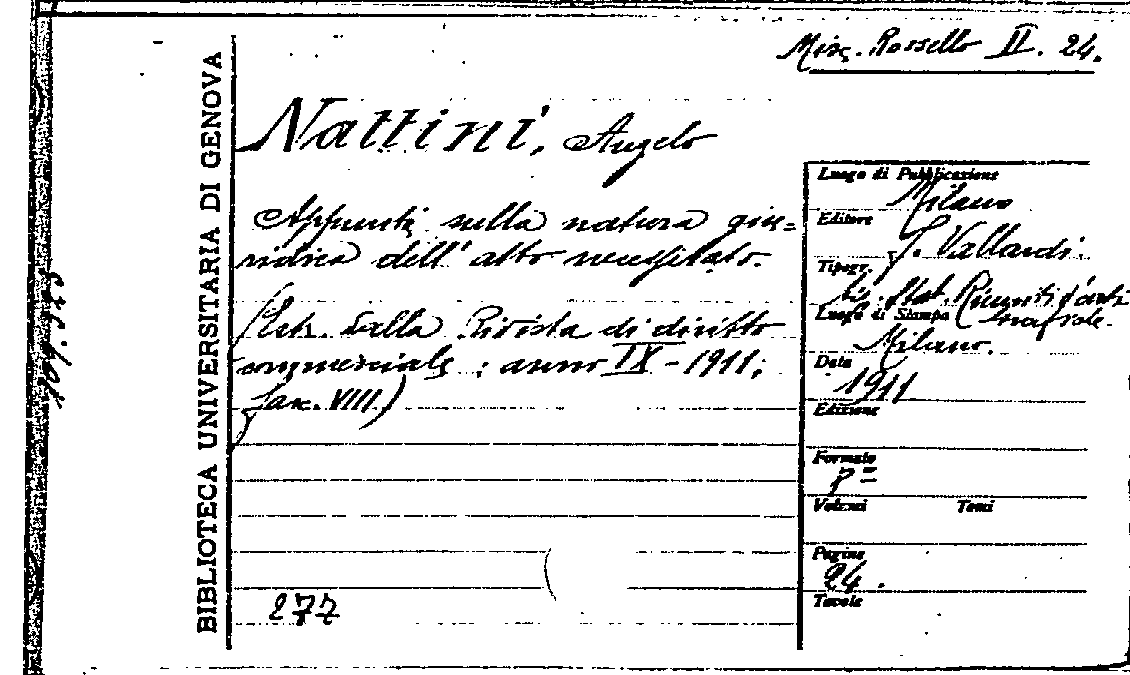 Misc. Rossello II. 24.
BIBLIOTECA UNIVERSITARIA DI GENOVA
Nattini, Angelo
Appunti sulla natura giu=
ridica dell'atto necessitato.
(Estr. dalla Rivista di diritto
commerciale; anno IX - 1911;
fasc. VIII)
277
Luogo di Pubblicazione
Milano
Editore
F. Vallardi.
Tipogr.
Stab. Riuniti d'arti
Luogo di Stampa
Milano.
Data
1911
Edizione
Formato
8º
Volumi Tomi
Pagine
24.
Tavole